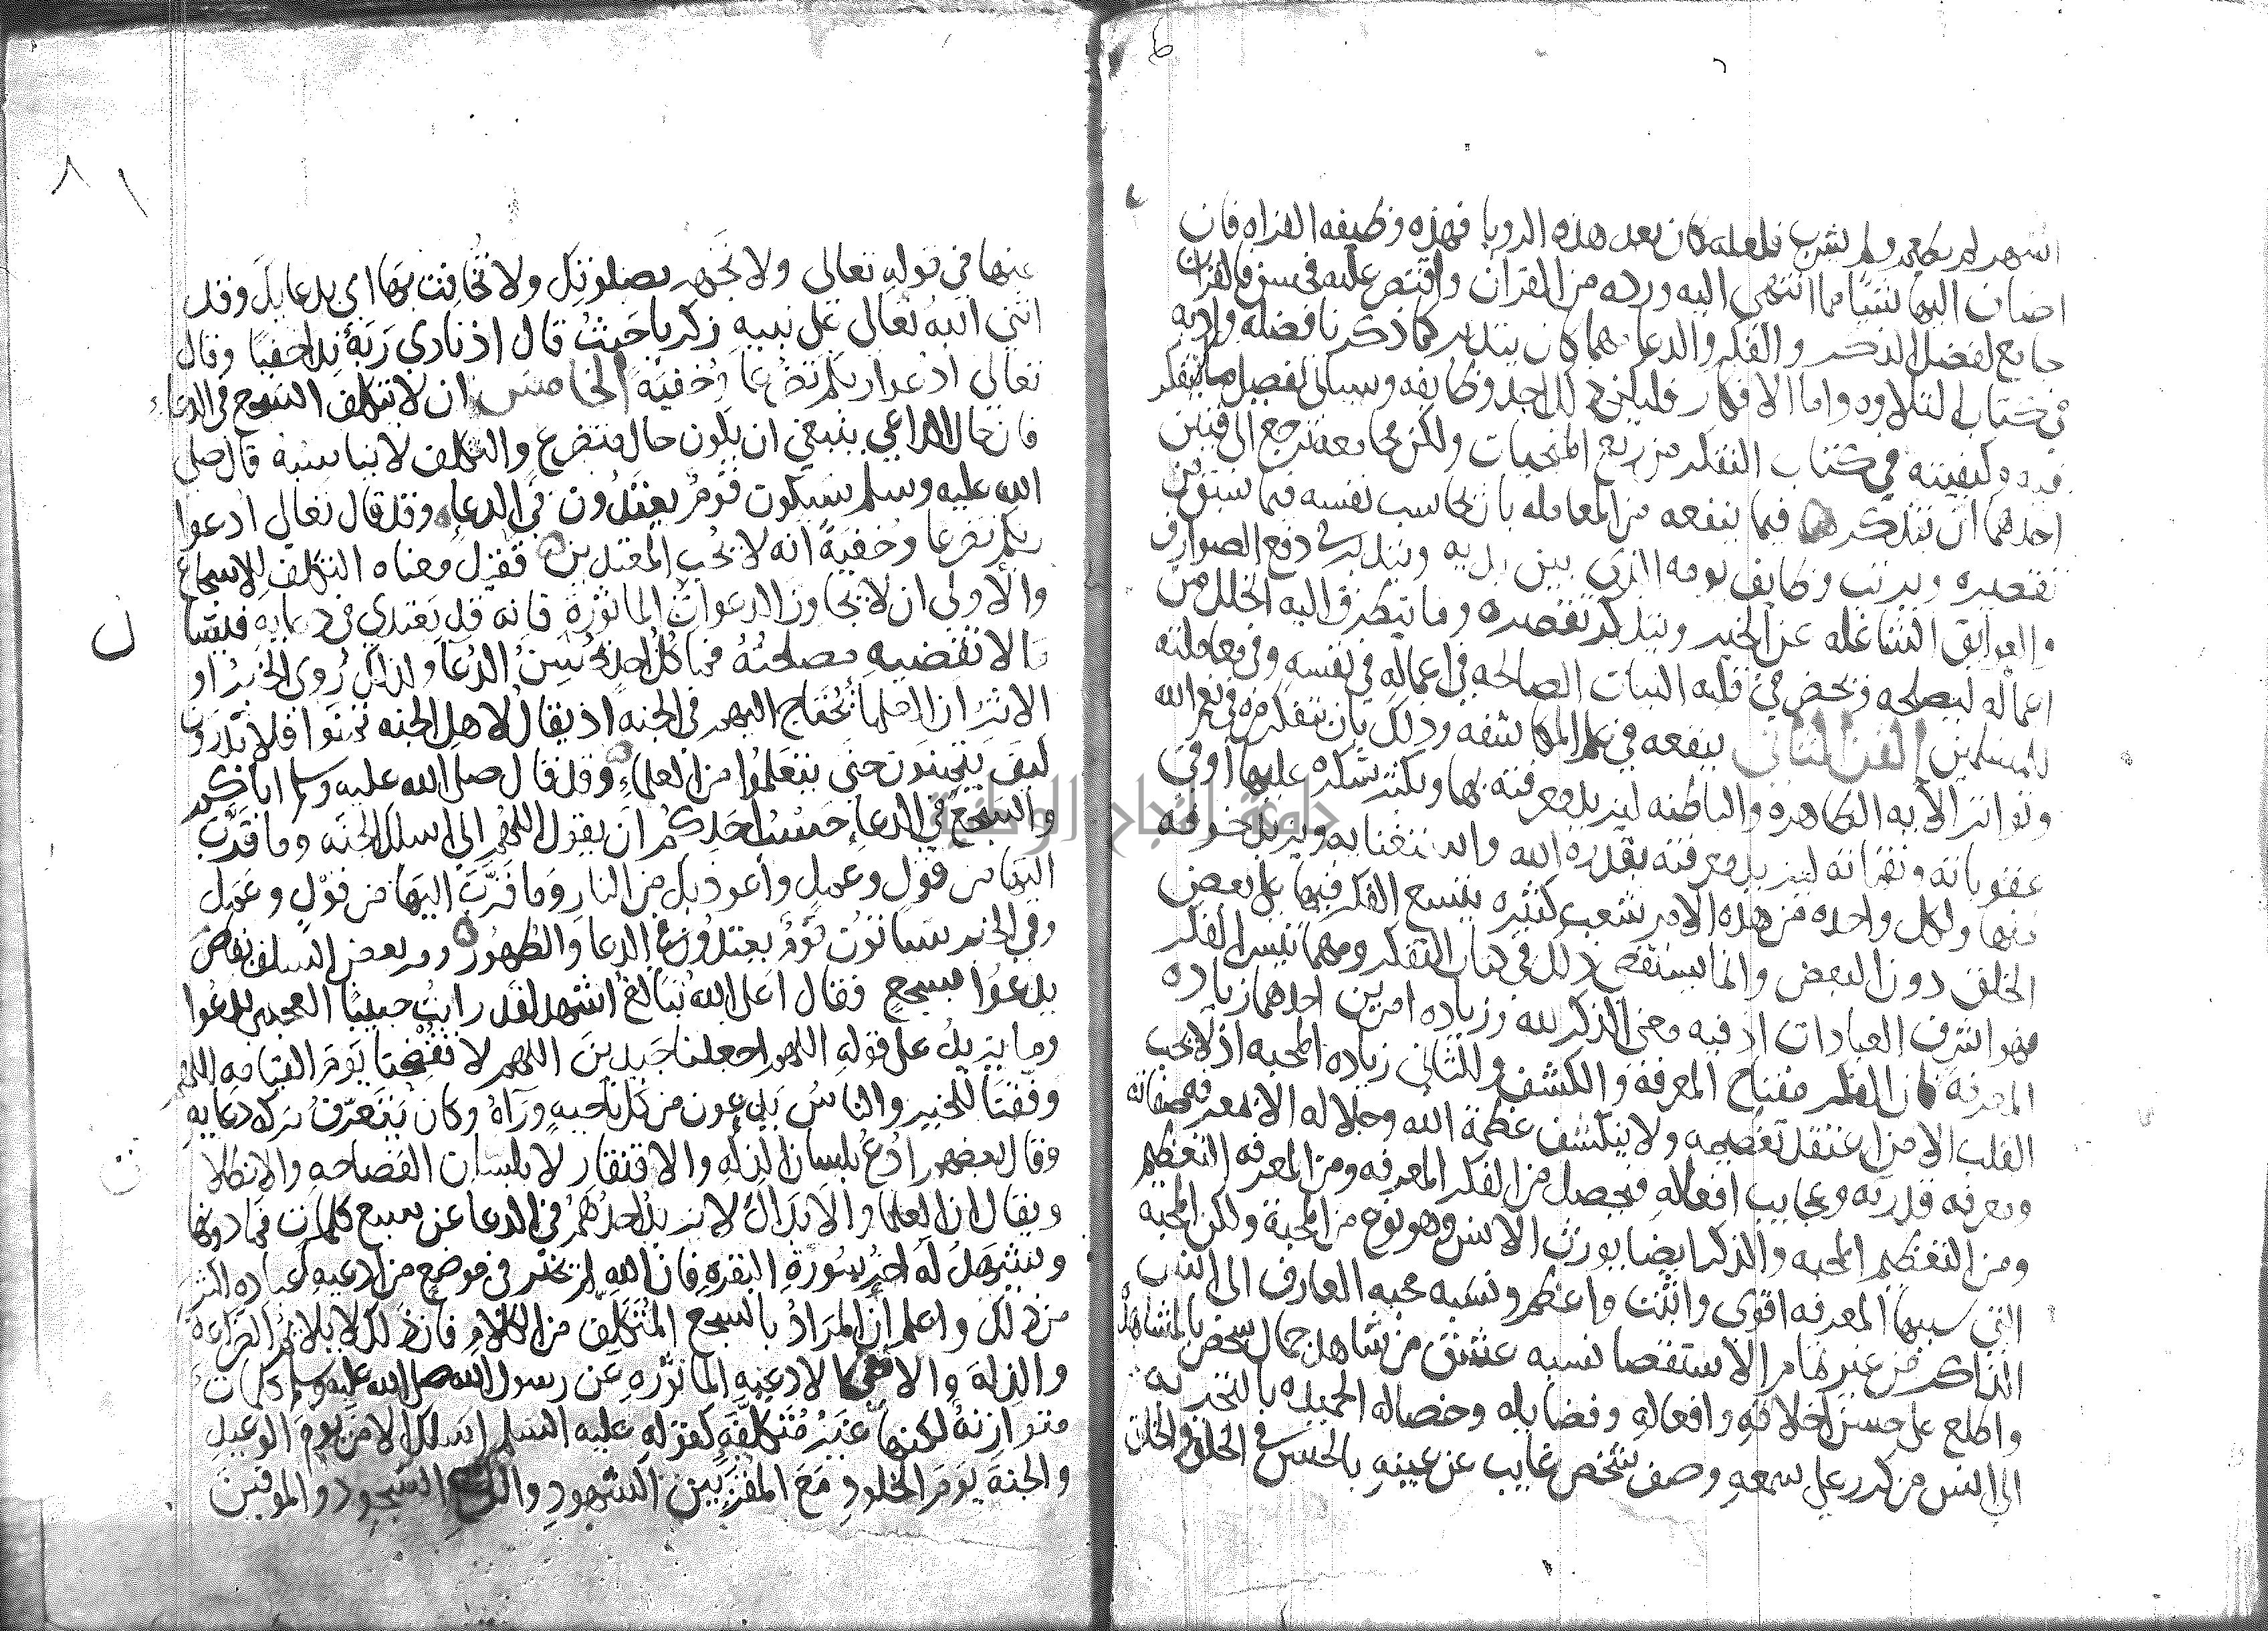 اشهر لم يطعم ولم يشرب فلعله كان بعد هذه الرويا فهذه وظيفه القراه فان
اضاف اليها شيئا مما انتهى اليه ورده من القرآن واقتصر عليه فحسن فالقرآن
جامع لفضل الذكر والفكر والدعا مهما كان بتدبر كما ذكرنا فضله وادبه
في كتاب التلاوه واما الافكار فليكن ذلك احد وظايفه وسياتي تفصيل ما يتفكر
فيه وكيفيته في كتاب التفكر من ربع المنجيات ولكن مجامعه ترجع الى فنين
احدهما ان يتذكر فيما ينفعه من المعامله بان يحاسب نفسه فيما سبق من
تقصيره ويرتب وظايف يومه الذي بين يديه ويتدبر في دفع الصوارف
والعوايق الشاغله عن الخير ويتذكر تقصيره وما يتطرق اليه الخلل من
اعماله ليصلحه ويحضر في قلبه النيات الصالحه في اعماله في نفسه وفي معاملته
للمسلمين الفن الثاني ينفعه في علم المكاشفه وذلك بان يتفكر مره في نعم الله
وتواتر الآيه الظاهره والباطنه ليزيد معرفته بها ويكثر شكره عليها أو في
عقوباته ونقماته ليزيد معرفته بقدره الله واستغنايه ويزيد خوفه
منها ولكل واحده من هذه الامور شعب كثيره يتسع الفكر فيها على بعض
الخلق دون البعض وانما يستقصى ذلك في كتاب التفكر ومهما تيسر الفكر
فهو اشرف العبادات اذ فيه معنى الذكر لله وزياده امرين احدهما زياده
المعرفه فان الفكر مفتاح المعرفة والكشف والثاني زياده المحبه اذ لا يحب
القلب الا من اعتقد تعظيمه ولا ينكشف عظمة الله وجلاله الا بمعرفه صفاته
ومعرفه قدرته وعجايب افعاله فيحصل من الفكر المعرفه ومن المعرفه التعظيم
ومن التعظيم المحبه والذكر ايضا يورث الانس وهو نوع من المحبة ولكن المحبه
التي سببها المعرفه اقوى واثبت واعظم ونسبه محبه العارف الى انس
الذاكر من غير تمام الاستقصا نسبه عشق من شاهد جمال شخص بالمشاهده
واطلع على حسن اخلاقه وافعاله وفضايله وخصاله الحميده بالتجربه
الى انس من كرر على سمعه وصف شخص غايب عن عينه بالحسن في الخلق والخلق
عنها في قوله تعالى ولا تجهر بصلوتك ولا تخافت بها اي بدعايك وقد
اثنى الله تعالى على نبيه زكريا حيث قال اذ نادى ربه ندا خفيا وقال
تعالى ادعوا ربكم تضرعا وخفية الخامس ان لا يتكلف السجع في الدعا
فان حال الداعي ينبغي ان يكون حال متضرع والتكلف لا يناسبه قال صلى
الله عليه وسلم سيكون قوم يعتدون في الدعا وقد قال تعالى ادعوا
ربكم تضرعا وخفية انه لا يحب المعتدين فقيل معناه التكلف للاسجاع
والأولى ان لا يجاوز الدعوات الماثورة فانه قد يعتدي في دعايه فيسا
ما لا تقتضيه مصلحته فما كل احد يحسن الدعا ولذلك روي الخبر او
الاثر ان العلما تحتاج اليهم في الجنه اذ يقال لاهل الجنه تمنوا فلا يدرون
كيف يتمنون حتى يتعلموا من العلماء وقد قال صلى الله عليه وسلم اياكم
والسجع في الدعاء حسب احدكم ان يقول اللهم اني اسلك الجنه وما قرب
اليها من قول وعمل وأعوذ بك من النار وما قرب اليها من قول وعمل
وفي الخبر سياتون قوم يعتدون في الدعا والطهور ومر بعض السلف بقاص
يدعوا بسجع فقال اعلى الله تبالغ اشهد لقد رايت حبيبا العجمي يدعوا
وما يزيد على قوله اللهم اجعلنا جيدين اللهم لا تفضحنا يوم القيامه اللهم
وفقنا للخير والناس يدعون من كل ناحيه وراه وكان يتعرف بركه دعايه
وقال بعضهم ادع بلسان الذله والافتقار لا بلسان الفصاحه والانطلاق
ويقال ان العلما والابدال لا يزيد احدهم في الدعا عن سبع كلمات فما دونها
ويشهد له اخر سورة البقره فان الله لم يخبر في موضع من ادعيه عباده اكثر
من ذلك واعلم ان المراد بالسجع المتكلف من الكلام فان ذلك لا يلايم الضراعه
والذلة والا ففي الادعيه الماثوره عن رسول الله صلى الله عليه وسلم كلمات
متوازنة لكنها غير متكلفه كقوله عليه السلم اسلك الامن يوم الوعيد
والجنة يوم الخلود مع المقربين الشهود والركع السجود والموفين